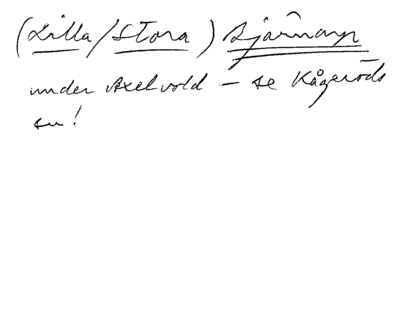 (Lilla/Stora) Bjärnarp
under Axelvold - se Kågeröds
sn!